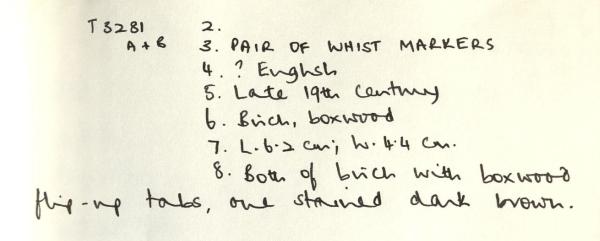 T 3281 2.
A + B 3. PAIR OF WHIST MARKERS
4. ? English
5. Late 19th Century
6. Birch, boxwood
7. L. 6.2 cm; W. 4.4 cm.
8. Both of birch with boxwood
flip-up tabs, one stained dark brown.